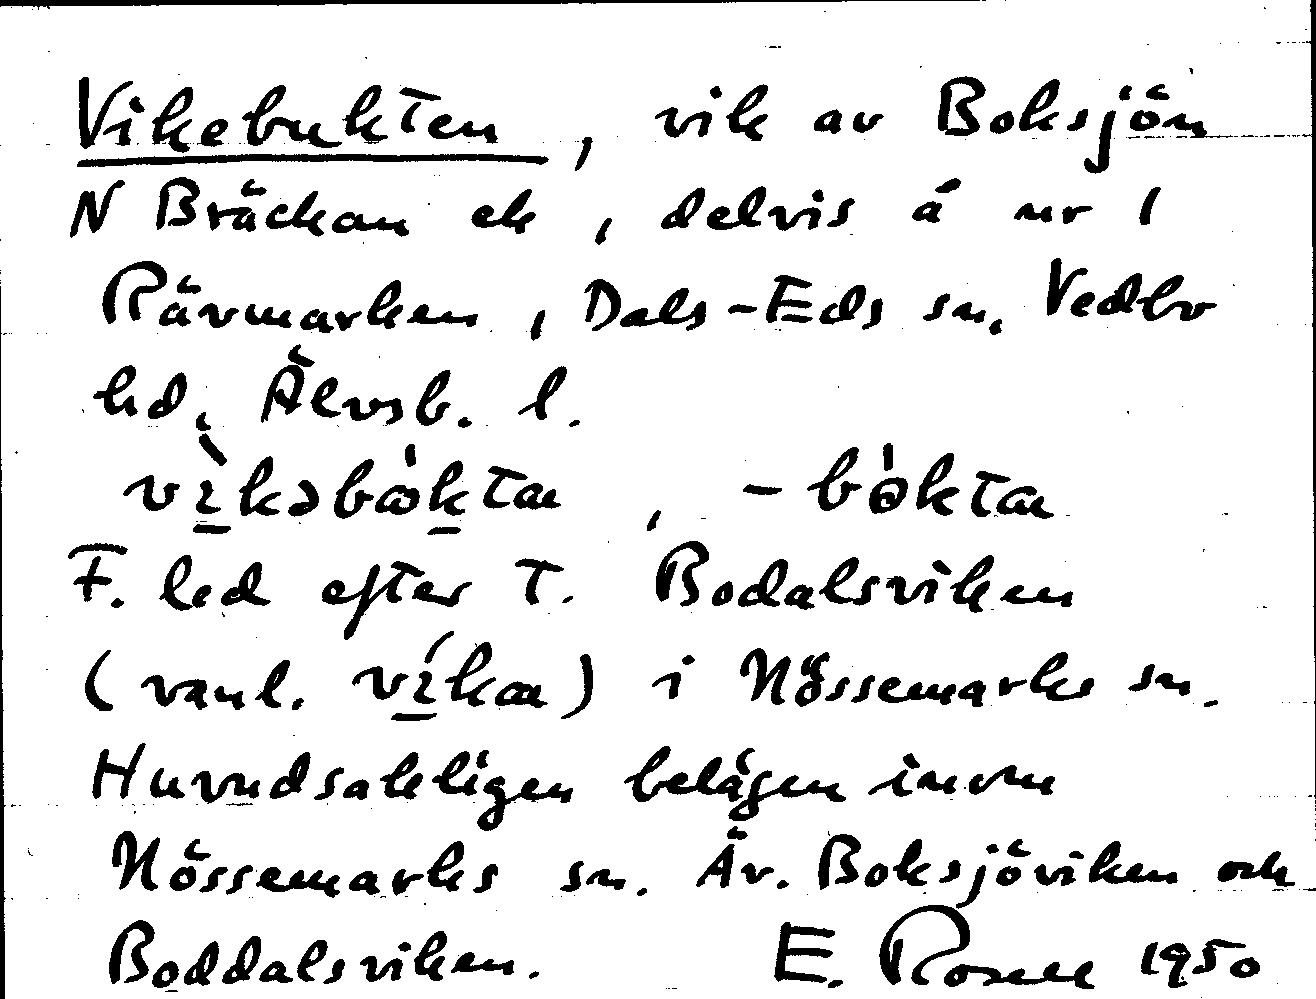 Vikebukten, vik av Boksjön
N Bräckan ek, delvis å nr 1
Rävmarken, Dals-Eds sn, Vedbo
hd, Älvsb. l.
F. led efter T. Bodalsviken
(vanl. ) i Nössemarks sn.
Huvudsakligen belägen inom
Nössemarks sn. Äv. Boksjöviken och
Boddalsviken. E. Rosell 1950